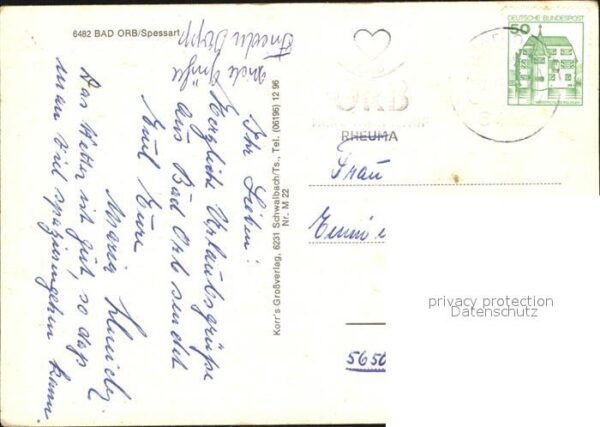 6482 BAD ORB/Spessart
Ihr Lieben!
Herzliche Urlaubsgrüße
aus Bad Orb sendet
Euch Eure
Maria
Das Wetter ist gut, so daß
man viel spazierengehen kann.
viele Grüße
Korr's Großverlag, 6231 Schwalbach/Ts., Tel. (06196) 12 96
Nr. M 22
ORB
RHEUMA
DEUTSCHE BUNDESPOST
50
Frau
5650
privacy protection
Datenschutz